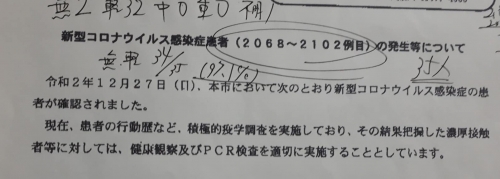 無2 軽32 中0 重0
新型コロナウイルス感染症患者(2068～2102例目)の発生等について
無軽 34/35 (97.1%) 35人
令和2年12月27日(日)、本市において次のとおり新型コロナウイルス感染症の患
者が確認されました。
現在、患者の行動歴など、積極的疫学調査を実施しており、その結果把握した濃厚接触
者等に対しては、健康観察及びPCR検査を適切に実施することとしています。